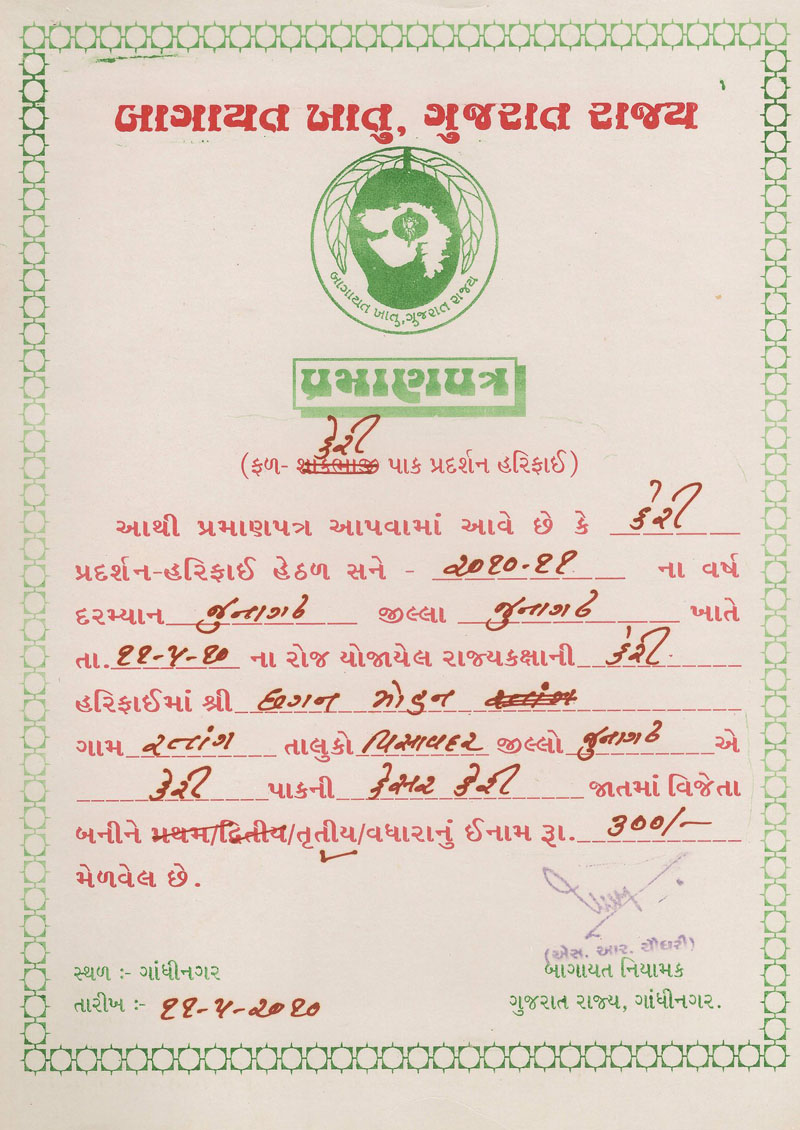 બાગાયત ખાતુ, ગુજરાત રાજ્ય
બાગાયત ખાતુ, ગુજરાત રાજ્ય
પ્રમાણપત્ર
કેરી
(ફળ- શાકભાજી પાક પ્રદર્શન હરિફાઈ)
આથી પ્રમાણપત્ર આપવામાં આવે છે કે કેરી
પ્રદર્શન-હરિફાઈ હેઠળ સને - ૨૦૧૦-૧૧ ના વર્ષ
દરમ્યાન જુનાગઢ જીલ્લા જુનાગઢ ખાતે
તા. ૧૧-૫-૧૦ ના રોજ યોજાયેલ રાજ્યકક્ષાની કેરી
હરિફાઈમાં શ્રી છગન મોહન
ગામ રતાંગ તાલુકો વિસાવદર જીલ્લો જુનાગઢ એ
કેરી પાકની કેસર કેરી જાતમાં વિજેતા
બનીને પ્રથમ/દ્વિતીય/તૃતીય/વધારાનું ઈનામ રૂા. ૩૦૦/-
મેળવેલ છે.
(એસ. આર. ચૌધરી)
સ્થળ :- ગાંધીનગર
બાગાયત નિયામક
તારીખ :- ૧૧-૫-૨૦૧૦
ગુજરાત રાજ્ય, ગાંધીનગર.